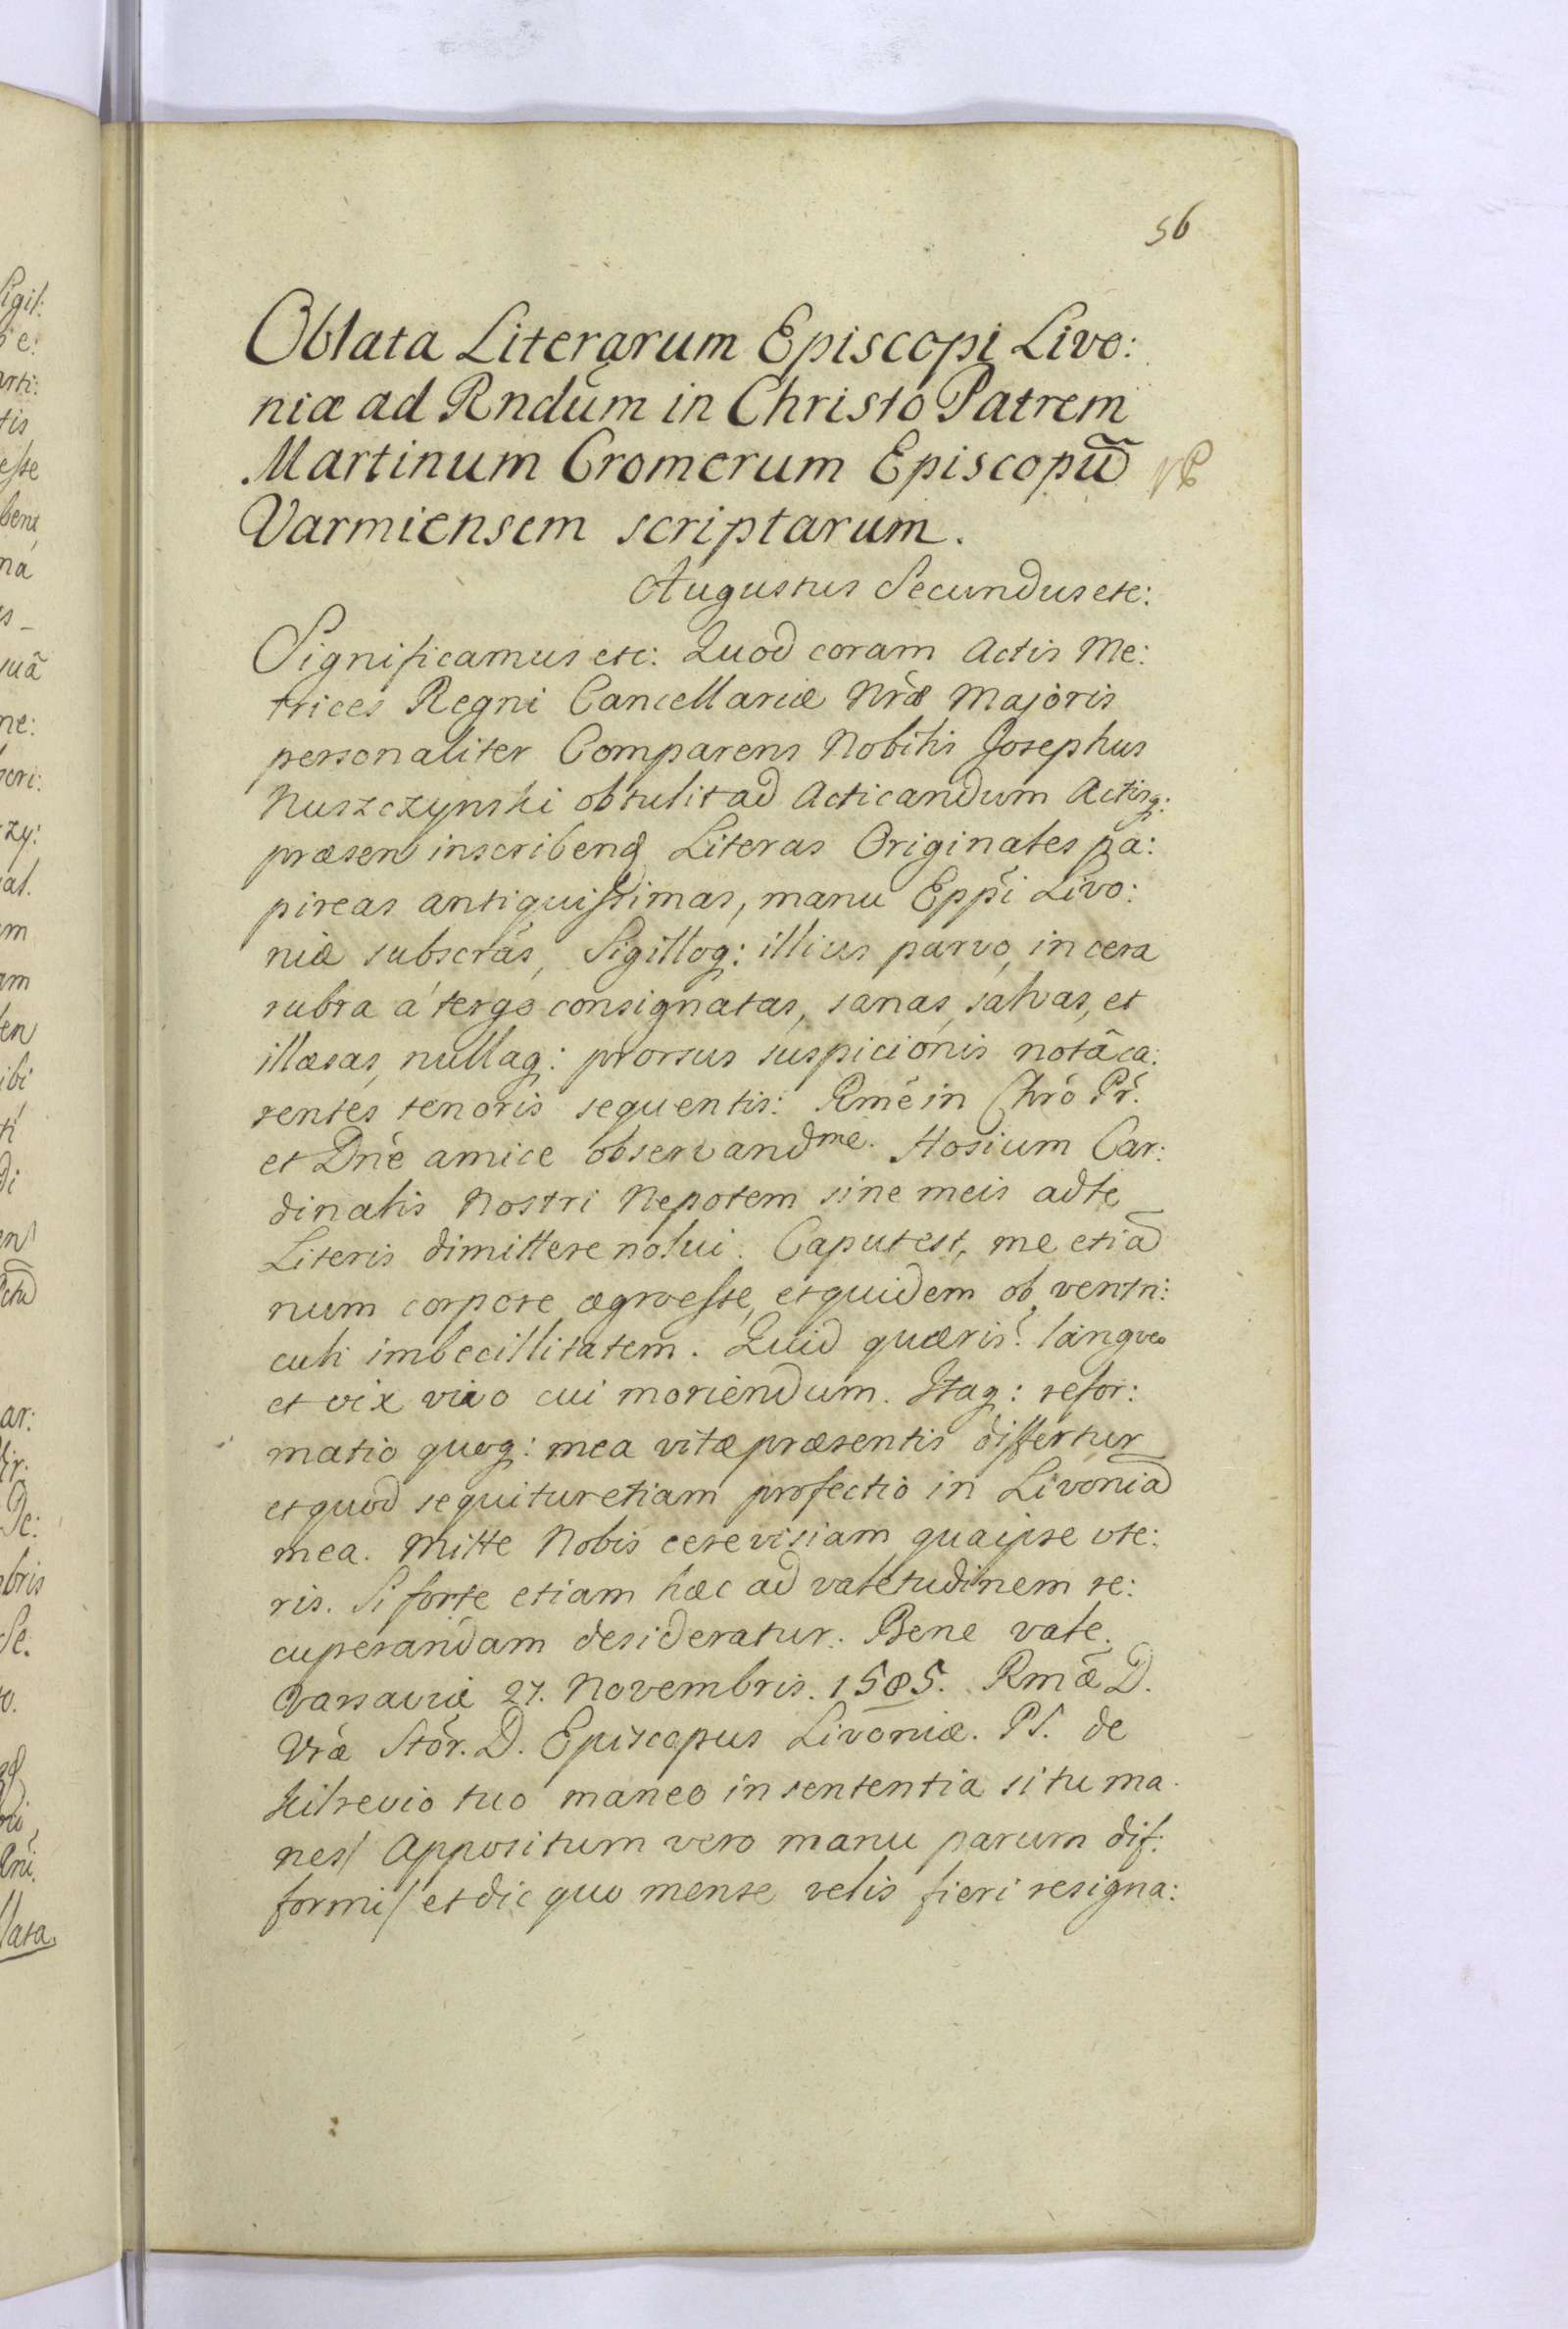 56
Oblata Literarum Episcopi Livo:
niæ ad Rndum in Christo Patrem
Martinum Cromerum Episcopũ
Varmiensem scriptarum.
Augustus Secundus etc:
Significamus etc: Quod coram Actis Me:
trices Regni Cancellariæ Nræ Majoris
personaliter Comparens Nobilis Josephus
Nuszczynski obtulit ad Acticandum Actisq:
præsen inscribend Literas Originales pa:
pireas antiquissimas, manu Eppi Livo:
niæ subscras, Sigilloq: illius parvo, in cera
rubra á tergo consignatas, sanas, salvas, et
illæsas, nullaq: prorsus suspicionis notâ ca:
rentes, tenoris sequentis: Rmé in Chró Pr.
et Dné amice observandme. Hosium Car:
dinalis Nostri Nepotem sine meis ad te
Literis dimittere nolui. Caput est, me etiã
num corpore ægro esse, et quidem ob ventri:
culi imbecillitatem. Quid quæris? langveo
et vix vivo cui moriendum. Itaq: refor:
matio quoq: mea vitæ præsentis differtur
et quod sequitur etiam profectio in Livoniã
mea. Mitte Nobis cerevisiam, qua ipse ute:
ris. Si forte etiam hæc ad valetudinem re:
cuperandam desideratur. Bene vale.
Varsaviæ 27. Novembris. 1585. Rmæ D.
Vræ Stór. D. Episcopus Livoniæ. PS. de
tuo maneo in sententia si tu ma
nes/ Appositum vero manu parum dif:
formi/ et dic quo mense velis fieri resigna: